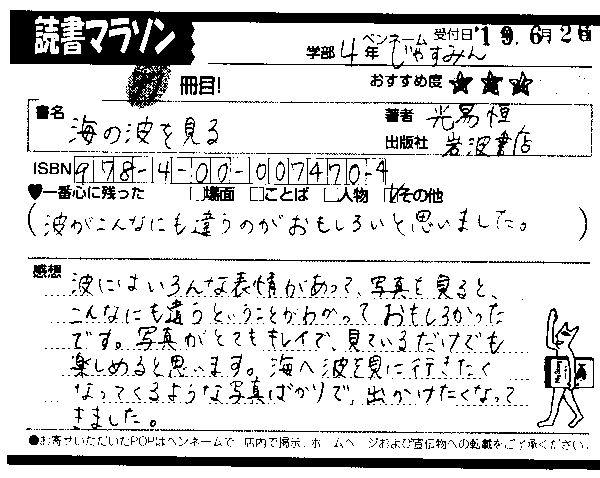 読書マラソン
学部 4年 ペンネーム じゃすみん 受付日 '19.6月26日
冊目! おすすめ度 ★★★
書名 海の波を見る 著者 光易恒
出版社 岩波書店
ISBN 978-4-00-007470-4
♥一番心に残った □場面 □ことば □人物 ☑その他
(波がこんなにも違うのがおもしろいと思いました。)
感想
波にはいろんな表情があって、写真を見ると、
こんなにも違うということがわかっておもしろかった
です。写真がとてもキレイで、見ているだけでも
楽しめると思います。海へ波を見に行きたく
なってくるような写真ばかりで、出かけたくなって
きました。
●お寄せいただいたPOPはペンネームで 店内で掲示、ホームページおよび宣伝物への転載をご了承ください。